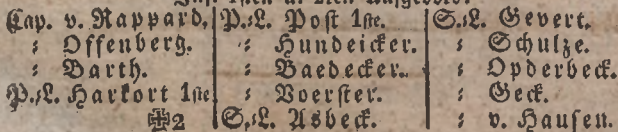 Cap. v. Rappard.
: Offenberg.
: Barth.
P.:L. Harkort 1ste
✠2
P.:L. Post 1ste.
: Hundeicker.
: Baedecker.
: Voerster.
S.:L. Asbeck.
S.:L. Gevert.
: Schulze.
: Opderbeck.
: Geck.
: v. Hausen.